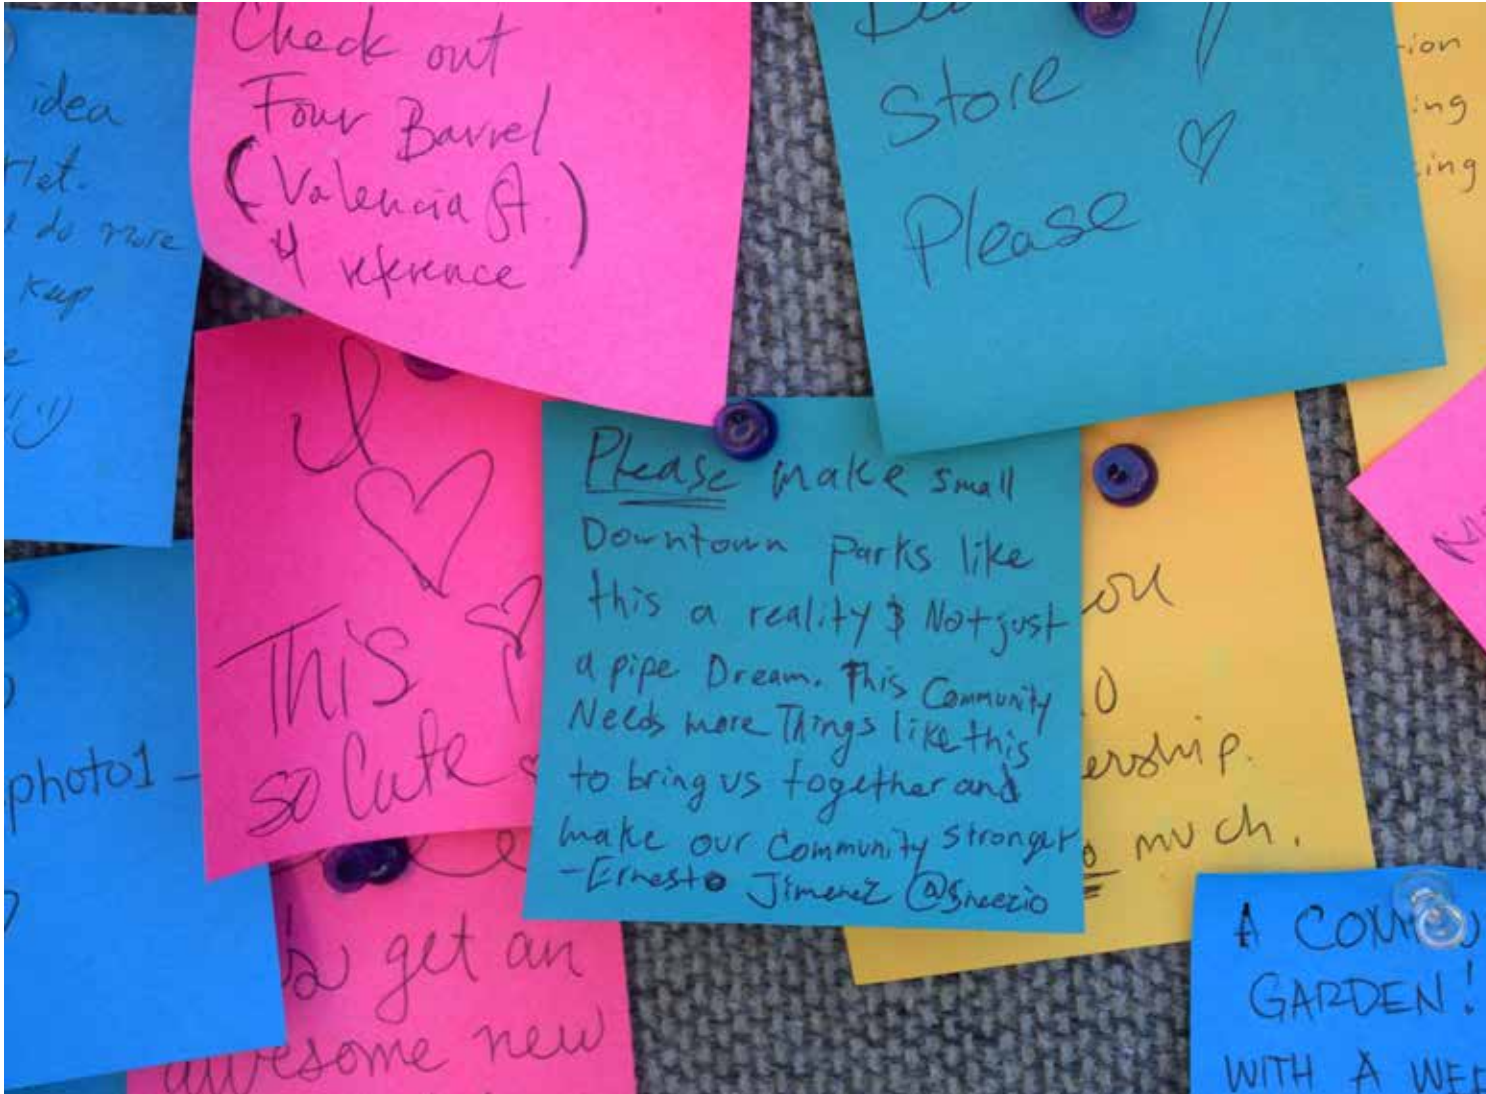 idea
do more
keep
Check out
Four Barrel
(Valencia St.)
4 reference
Store
Please
ion
ing
ing
I
This
so Cute
Please make small
Downtown parks like
this a reality & Not just
a pipe Dream. This Community
Needs more Things like this
to bring us together and
make our Community Stronger
-Ernesto Jimenez @Sneezio
ou
ership.
much.
photo1 -
get an
awesome new
A
GARDEN!
WITH A